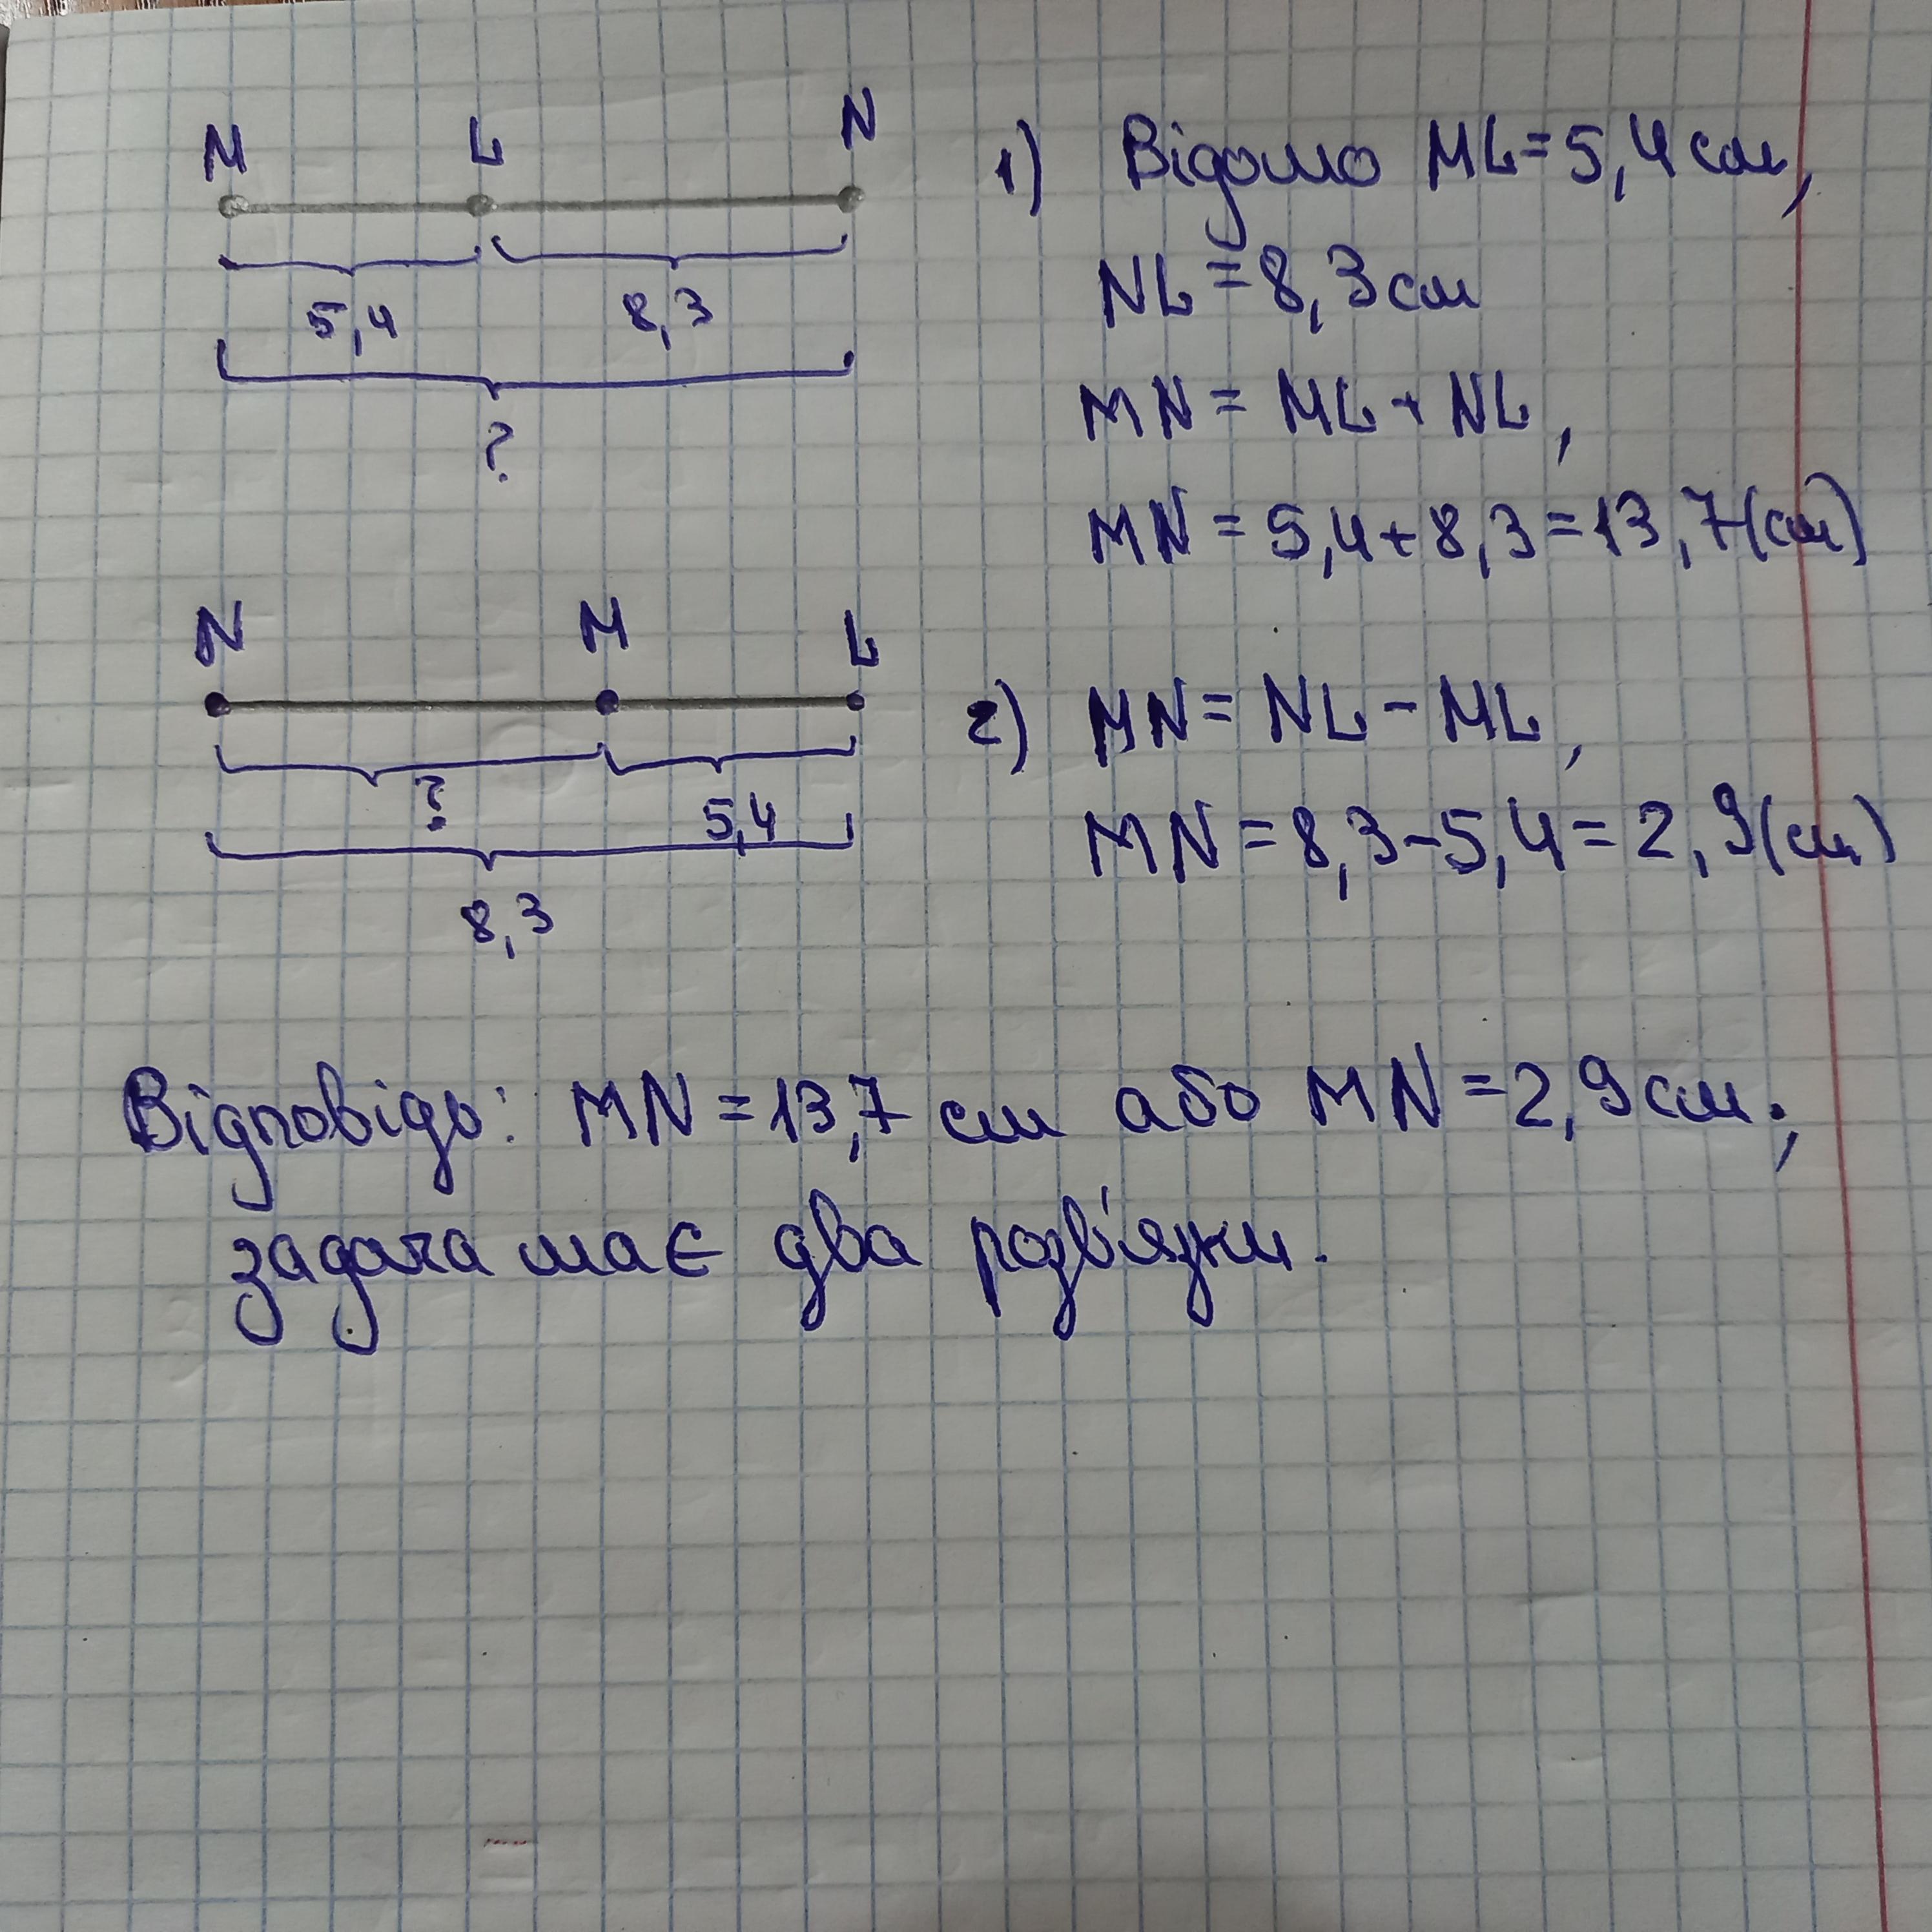 M L N
5,4 8,3
?
1) Відомо ML=5,4см,
NL=8,3см
MN = ML + NL,
MN = 5,4+8,3=13,7(см)
N M L
? 5,4
8,3
2) MN= NL - ML,
MN = 8,3-5,4=2,9(см)
Відповідь: MN=13,7 см або MN=2,9см.,
задача має два розв'язки.